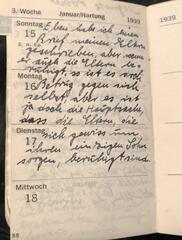 3. Woche Januar/Hartung 1939
1939
Sonntag Eben habe ich einen
15 Brief meinen Eltern
2. n. Ep. geschrieben, aber wenn
er auch die Eltern be-
ruhigt, so ist es doch
Montag Betrug gegen sich
16 selbst, aber es ist
ja doch die Hauptsache,
dass die Eltern, die
Dienstag sich gewiss um
17 ihren einzigen Sohn
sorgen, beruhigt sind.
Mittwoch
18